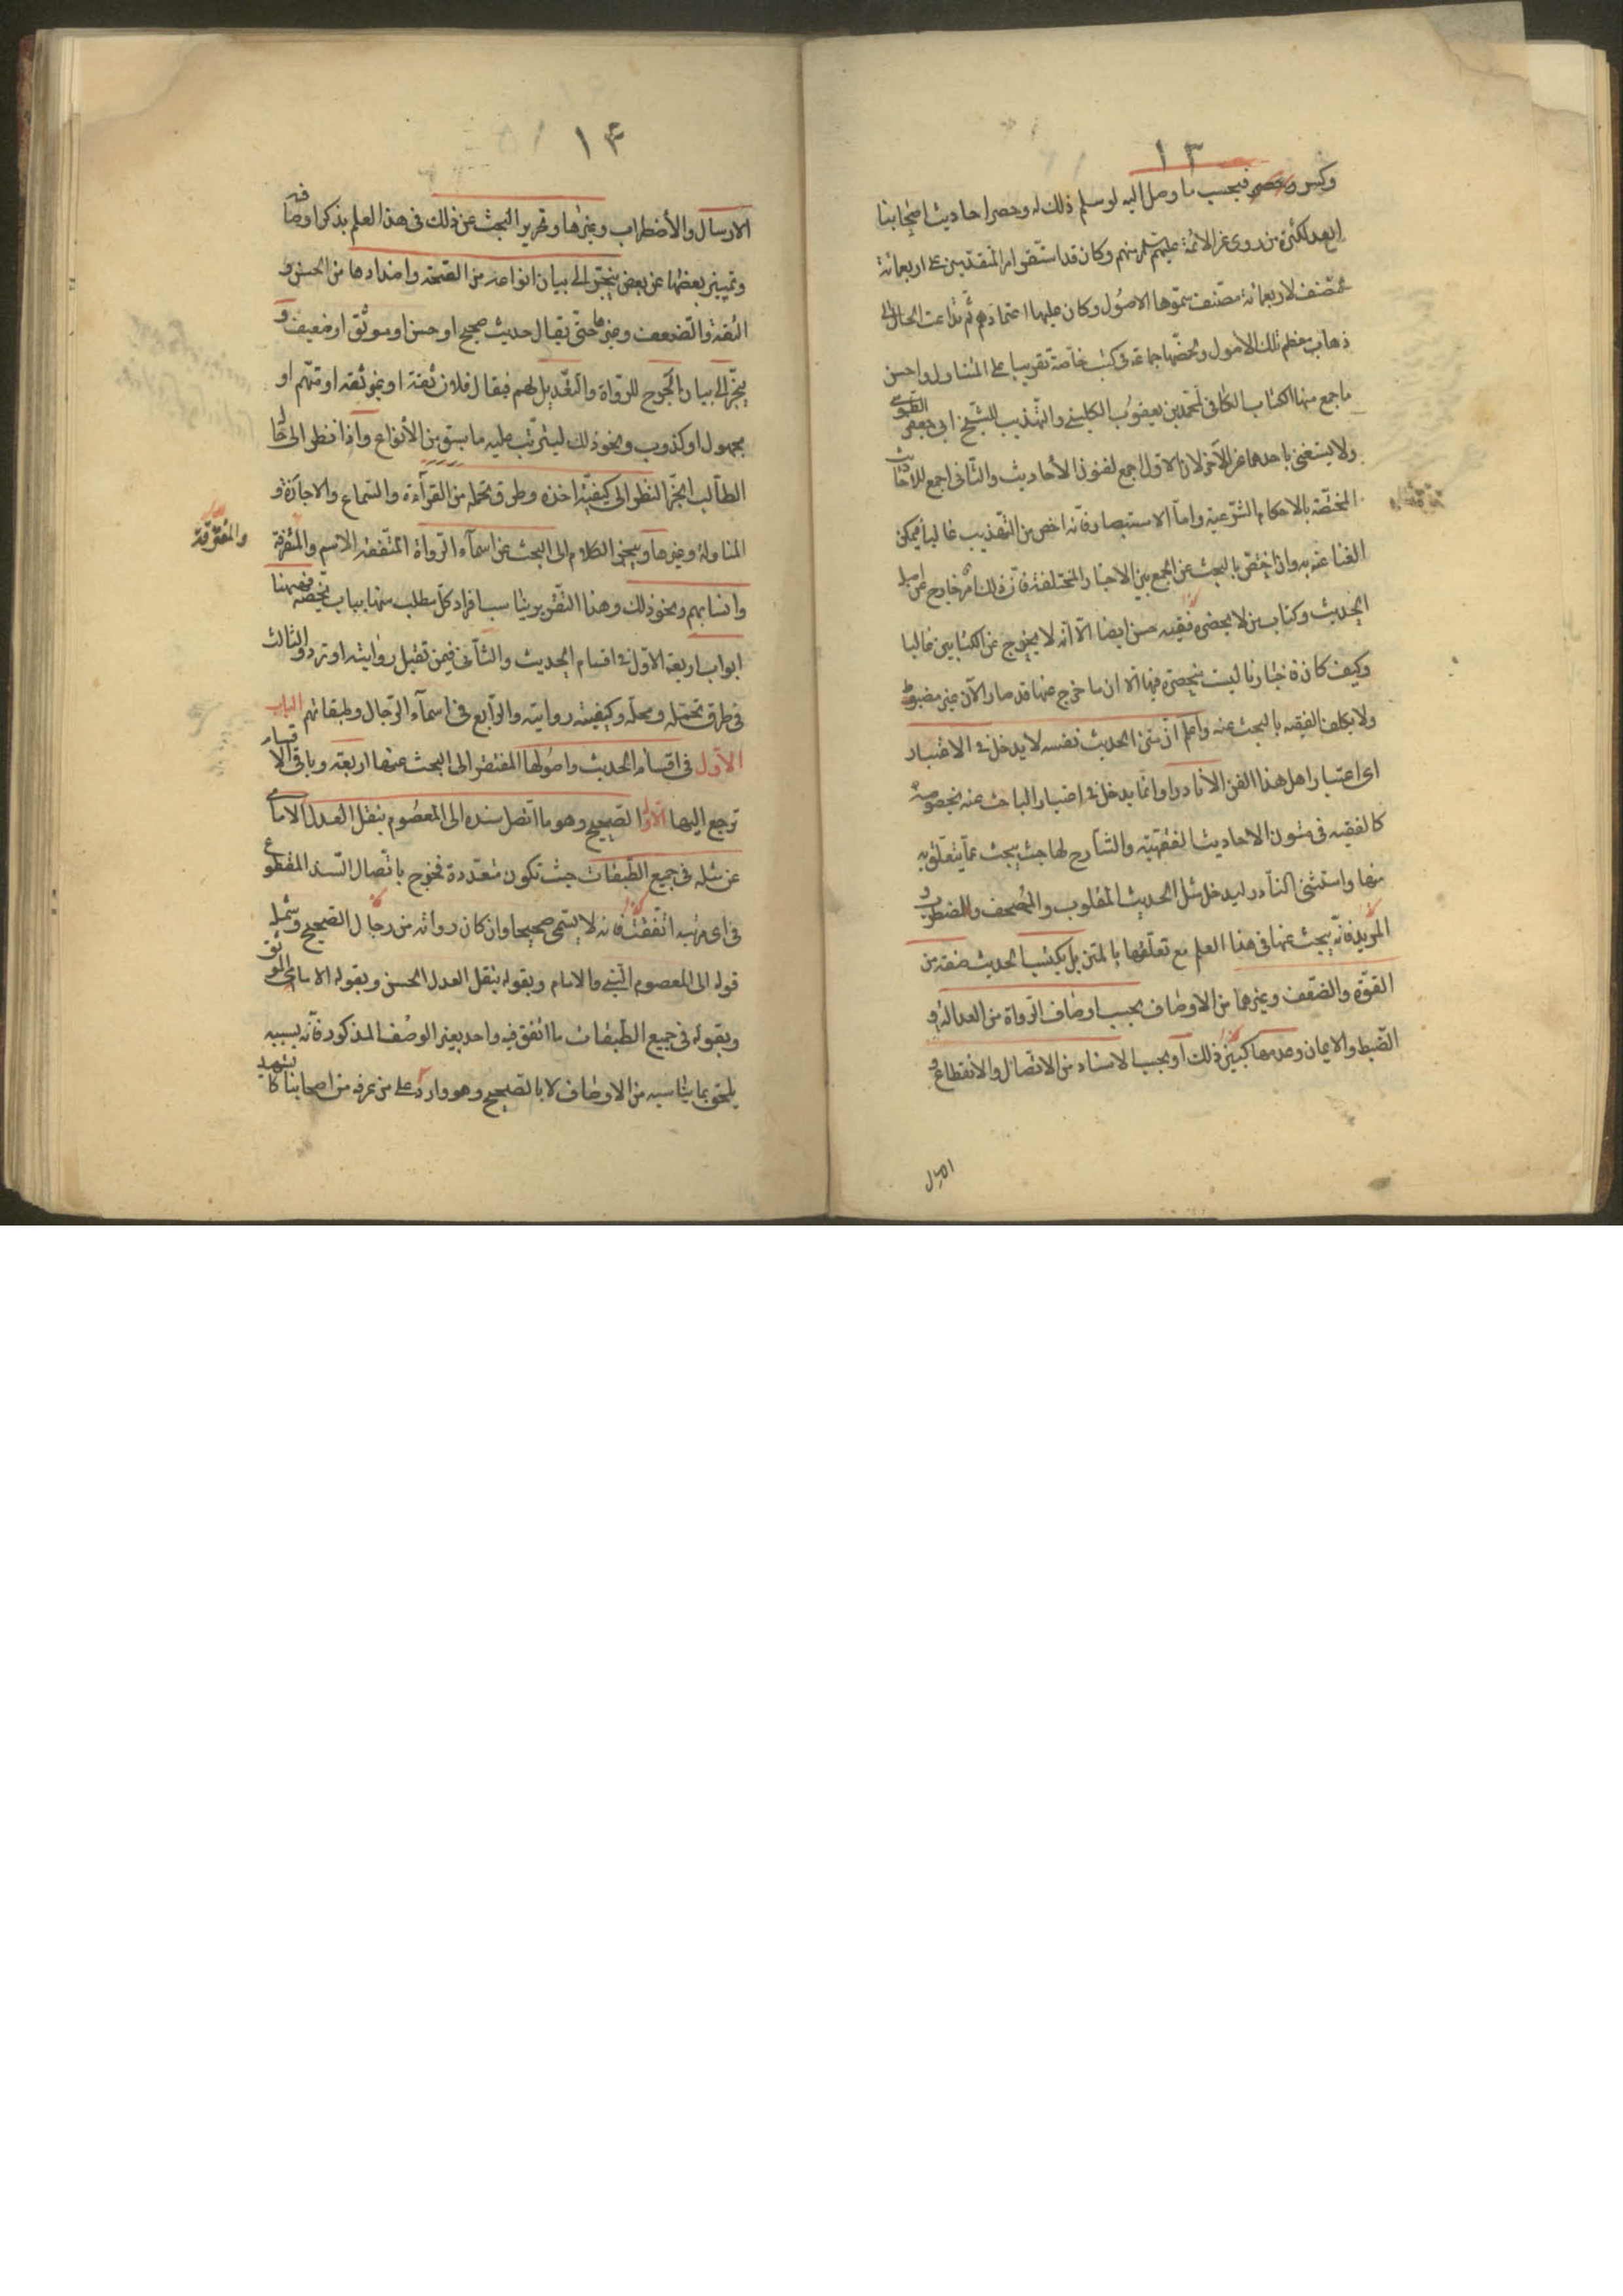 ١٣
وكسر وحصر فبحسب ما وصل اليه لو سلم ذلك له وحصر احاديث اصحابنا
ابعد لكثرة من روى عن الائمة عليهم السلم منهم وكان قد استقر امر المتقدمين على اربعمائة
مصنف لاربعمائة مصنف سموها الاصول وكان عليها اعتمادهم ثم تداعت الحال الى
ذهاب معظم تلك الاصول ولخصها جماعة فى كتب خاصة تقريبا على المتناول واحسن
ما جمع منها الكتاب الكافى لمحمد بن يعقوب الكلينى والتهذيب للشيخ ابى جعفر الطوسى
ولا يستغنى باحدهما عن الآخر لان الاول اجمع لفنون الأحاديث والثانى اجمع للاحاديث
المختصة بالاحكام الشرعية واما الاستبصار فانه اخص من التهذيب غالبا فيمكن
الغنا عنه به وان اختص بالبحث عن الجمع بين الاخبار المختلفة فان ذلك امر خارج عن اصل
الحديث وكتاب من لا يحضره فقيه حسن ايضا الا انه لا يخرج عن الكتابين غالبا
وكيف كان فاخبارنا ليست منحصرة فيها الا ان ما خرج عنها قد صار الآن غير مضبوط
ولا يكلف الفقيه بالبحث عنه واعلم ان متن الحديث نفسه لا يدخل فى الاعتبار
اى اعتبار اهل هذا الفن الا نادرا وانما يدخل فى اعتبار الباحث عنه بخصوصه
كالفقيه فى متون الاحاديث الفقهية والشارح لها حيث يبحث عما يتعلق به
منها واستثنى النادر ليدخل مثل الحديث المقلوب والمصحف والمضطرب و
المزيد فانه يبحث عنها فى هذا العلم مع تعلقها بالمتن بل يكتسب الحديث صفة من
القوة والضعف وغيرهما من الاوصاف بحسب اوصاف الرواة من العدالة و
الضبط والايمان وعدمها كبين ذلك او بحسب الاسناد من الاتصال والانقطاع و
الارسال
١٤
الارسال والأضطراب وغيرها وتحرير البحث عن ذلك فى هذا العلم بذكر اوصافه
وتمييز بعضها عن بعض ينجر الى بيان انواعه من الصحة واضدادها من الحسن و
الثقة والضعف وغيرها حتى يقال حديث صحيح او حسن او موثق او ضعيف و
ينجر الى بيان الجرح للرواة والتعديل لهم فيقال فلان ثقة او غير ثقة او متهم او
مجهول او كذوب ونحو ذلك ليترتب عليه ما سبق من الأنواع واذا نظر الى حال
الطالب انجر النظر الى كيفية اخذه وطرق تحمله من القرآءة والسماع والاجازة و
المناولة وغيرها وينجر الكلام الى البحث عن اسمآء الرواة المتفقة الاسم والمفترقة
والمفترقة
وانسابهم ونحو ذلك وهذا التقرير يناسب افراد كل مطلب منها بباب يخصه فهيهنا
ابواب اربعة الاول فى اقسام الحديث والثانى فيمن تقبل روايته او ترد والثالث
فى طرق تحمله ومحله وكيفية روايته والرابع فى اسمآء الرجال وطبقاتهم الباب
الاول فى اقسام الحديث واصولها المفتقر الى البحث عنها اربعة وباقى الاقسام
ترجع اليها الاول الصحيح وهو ما اتصل سنده الى المعصوم بنقل العدل الامامى
عن مثله فى جميع الطبقات حيث تكون متعددة فخرج باتصال السند المقطوع
فى اى مرتبة اتفقت فانه لا يسمى صحيحا وان كان رواته من رجال الصحيح وشمل
قوله الى المعصوم النبى والامام وبقوله بنقل العدل الحسن وبقوله الامامى الموثق
وبقوله فى جميع الطبقات ما اتفق فيه واحد بغير الوصف المذكور فانه بسببه
يلحق بما يناسبه من الاوصاف لا بالصحيح وهو وارد على من عرفه من اصحابنا كالشهيد